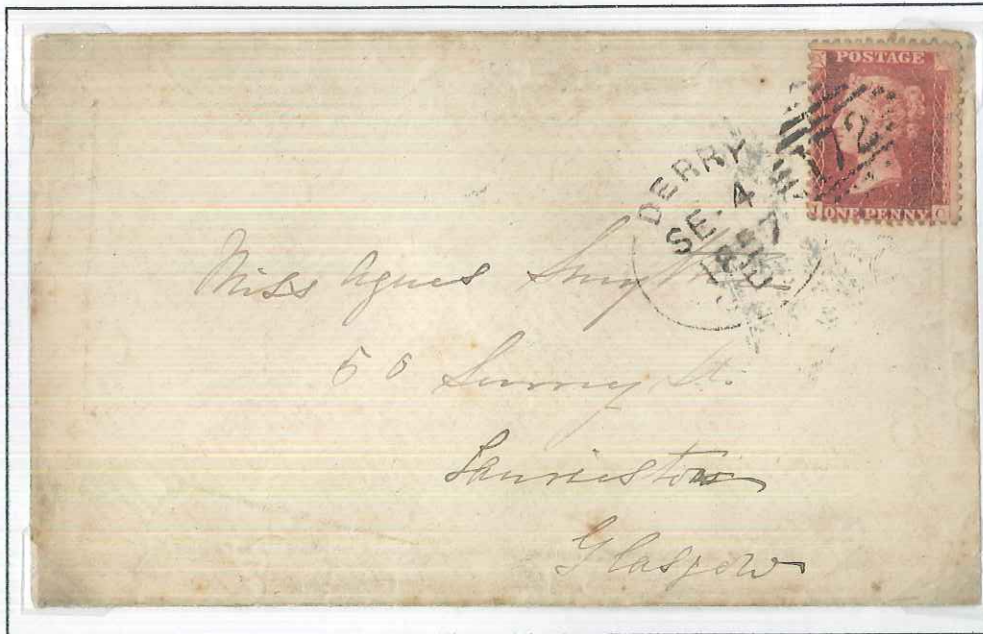 POSTAGE
172
ONE PENNY
DERRY
SE. 4
1857
Miss Agnes Smyth
Surrey St.
Laurieston
Glasgow